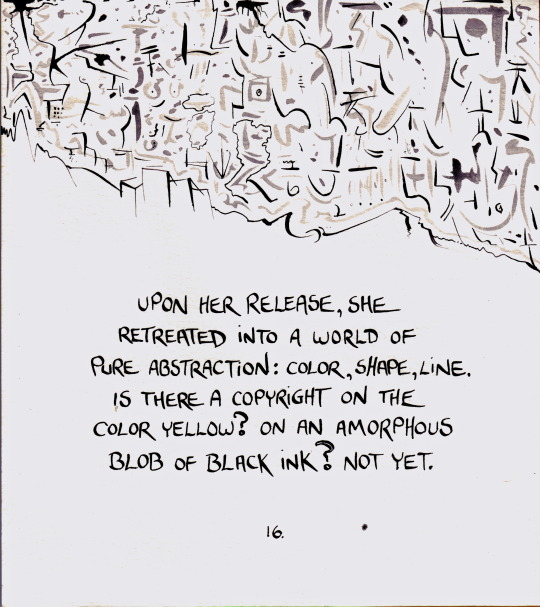 UPON HER RELEASE, SHE
RETREATED INTO A WORLD OF
PURE ABSTRACTION: COLOR, SHAPE, LINE.
IS THERE A COPYRIGHT ON THE
COLOR YELLOW? ON AN AMORPHOUS
BLOB OF BLACK INK? NOT YET.
16.